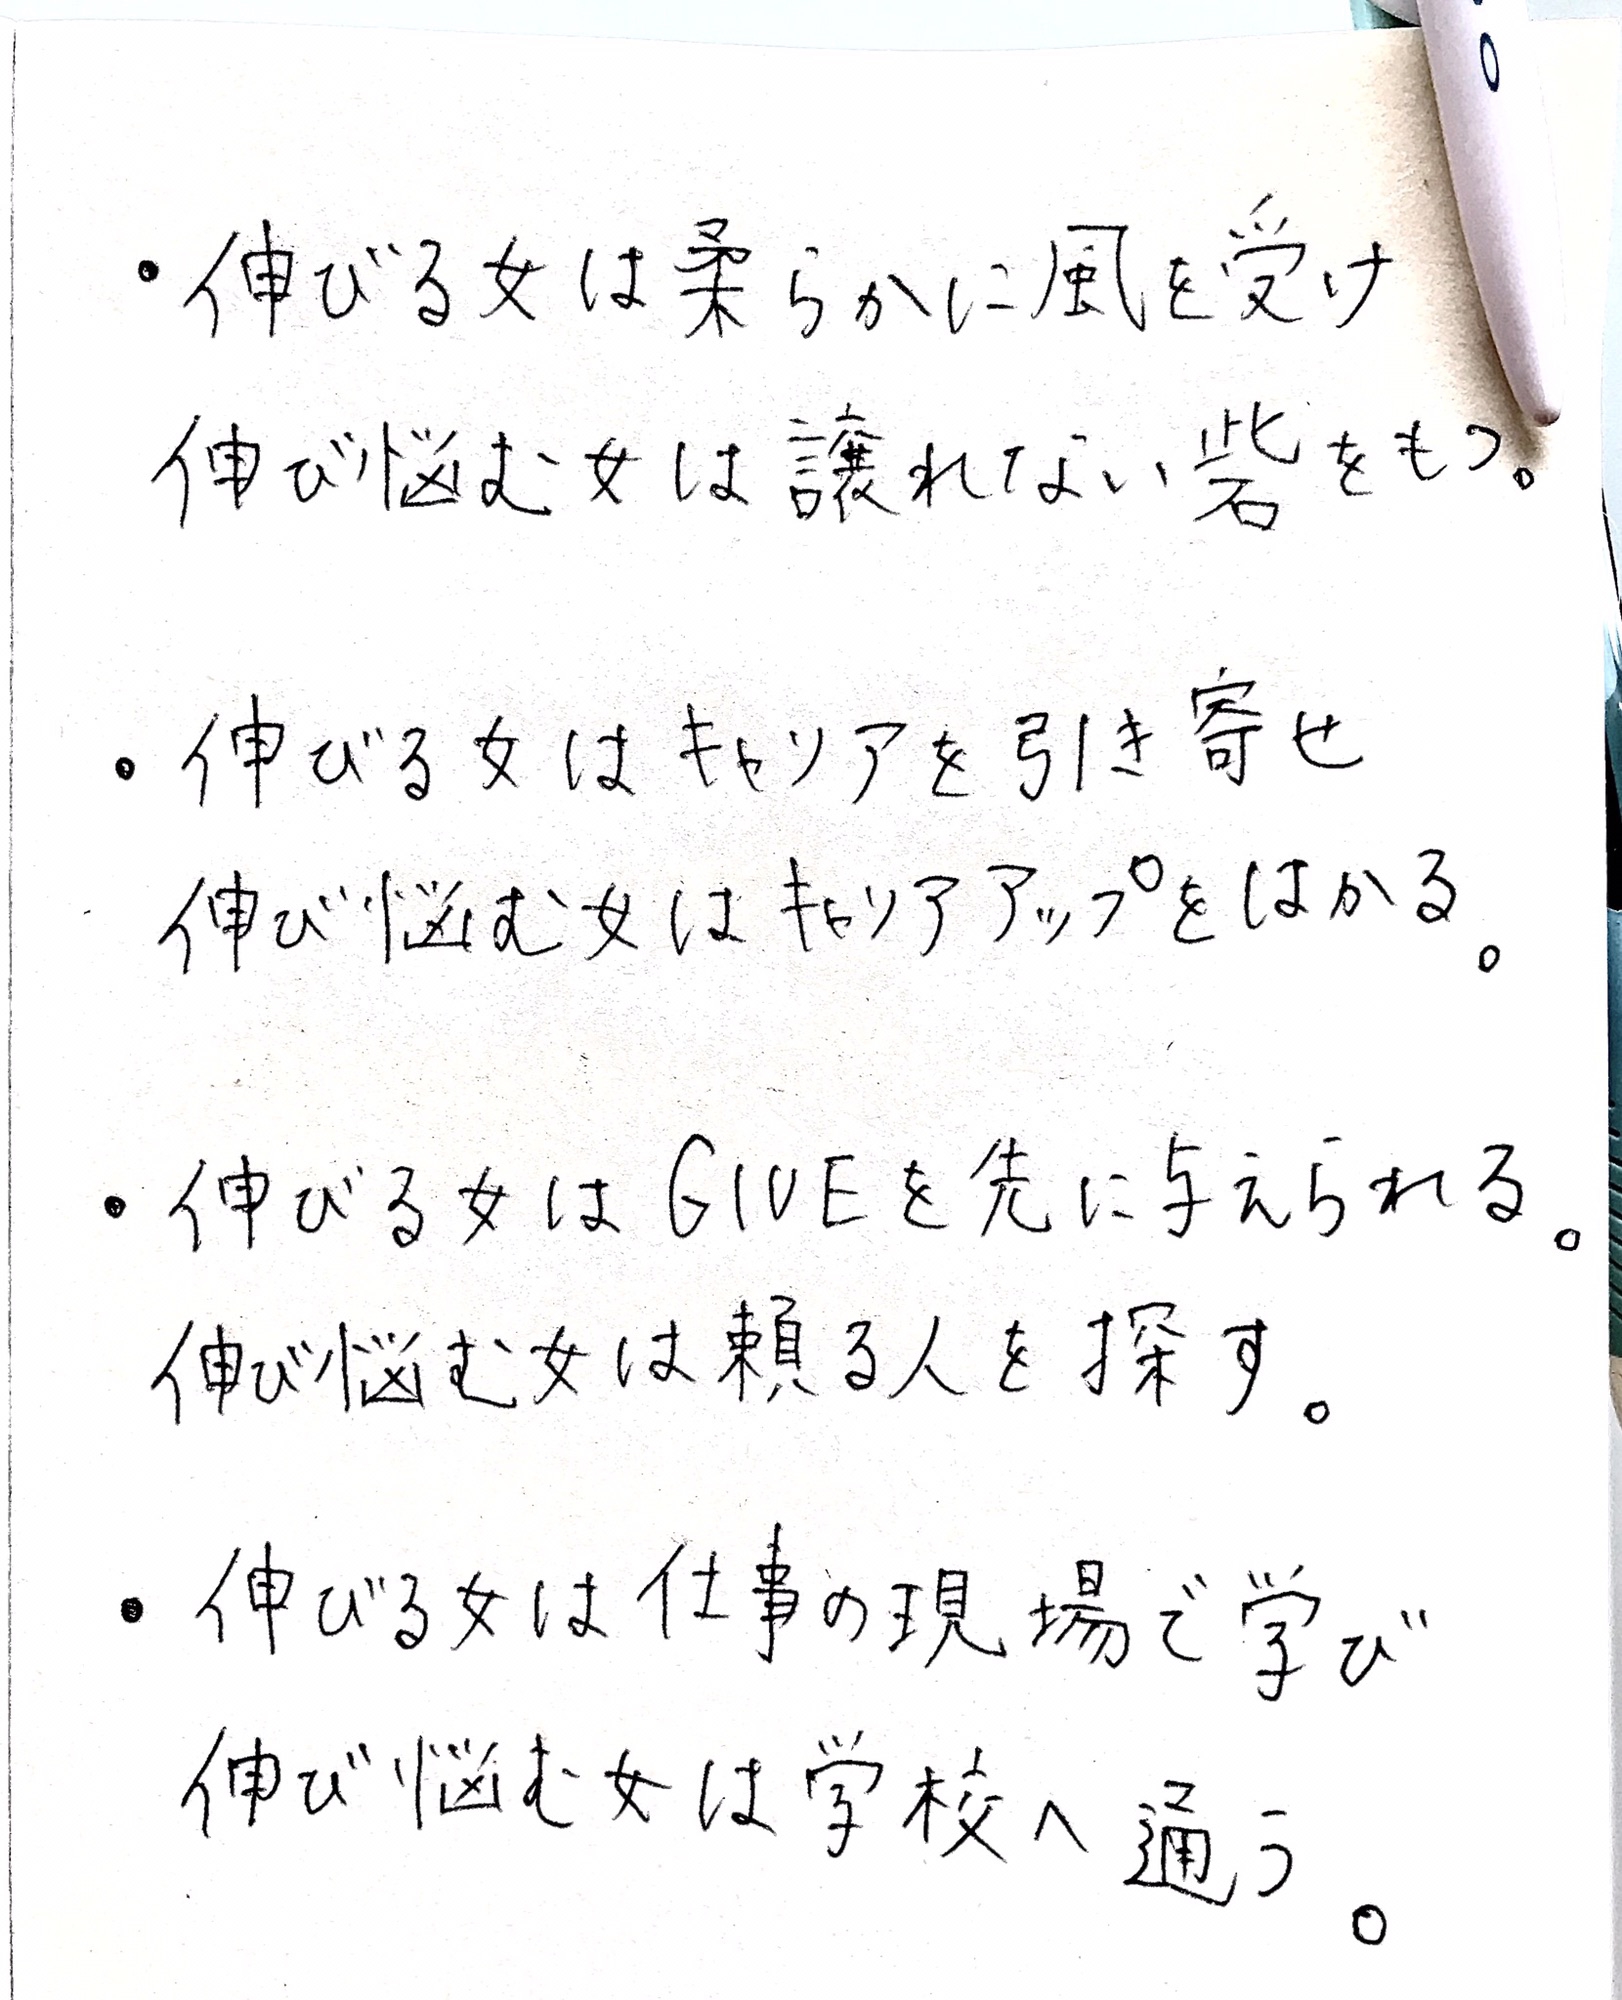 ・伸びる女は柔らかに風を受け
伸び悩む女は譲れない砦をもつ。
・伸びる女はキャリアを引き寄せ
伸び悩む女はキャリアアップをはかる。
・伸びる女はGIVEを先に与えられる。
伸び悩む女は頼る人を探す。
・伸びる女は仕事の現場で学び
伸び悩む女は学校へ通う。